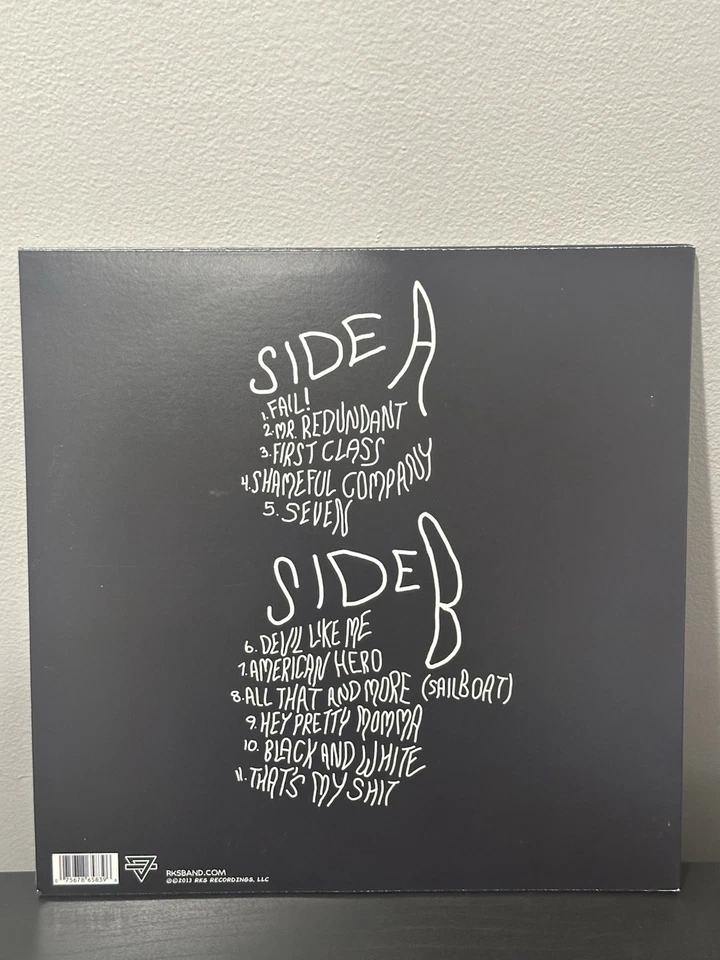 SIDE A
1. FAIL!
2. MR. REDUNDANT
3. FIRST CLASS
4. SHAMEFUL COMPANY
5. SEVEN
SIDE B
6. DEVIL LIKE ME
7. AMERICAN HERO
8. ALL THAT AND MORE (SAILBOAT)
9. HEY PRETTY MOMMA
10. BLACK AND WHITE
11. THAT'S MY SHIT
RKSBAND.COM
℗©2013 RKS RECORDINGS, LLC
75678 65839